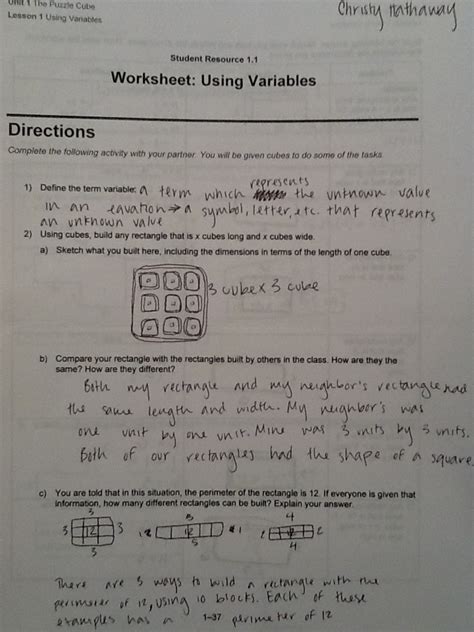 Unit 1 The Puzzle Cube
Lesson 1 Using Variables
Christy Hathaway
Student Resource 1.1
Worksheet: Using Variables
Directions
Complete the following activity with your partner. You will be given cubes to do some of the tasks
1) Define the term variable: a term which represents the unknown value
in an equation → a symbol, letter, etc. that represents
an unknown value
2) Using cubes, build any rectangle that is x cubes long and x cubes wide.
a) Sketch what you built here, including the dimensions in terms of the length of one cube.
3 cube x 3 cube
b) Compare your rectangle with the rectangles built by others in the class. How are they the
same? How are they different?
Both my rectangle and my neighbor's rectangle had
the same length and width. My neighbor's was
one unit by one unit. Mine was 3 units by 3 units.
Both of our rectangles had the shape of a square.
c) You are told that in this situation, the perimeter of the rectangle is 12. If everyone is given that
information, how many different rectangles can be built? Explain your answer.
3 5 4
3 12 3 12 1 2 2
3 5 4
There are 3 ways to build a rectangle with the
perimeter of 12, using 10 blocks. Each of these
examples has a perimeter of 12
1-37